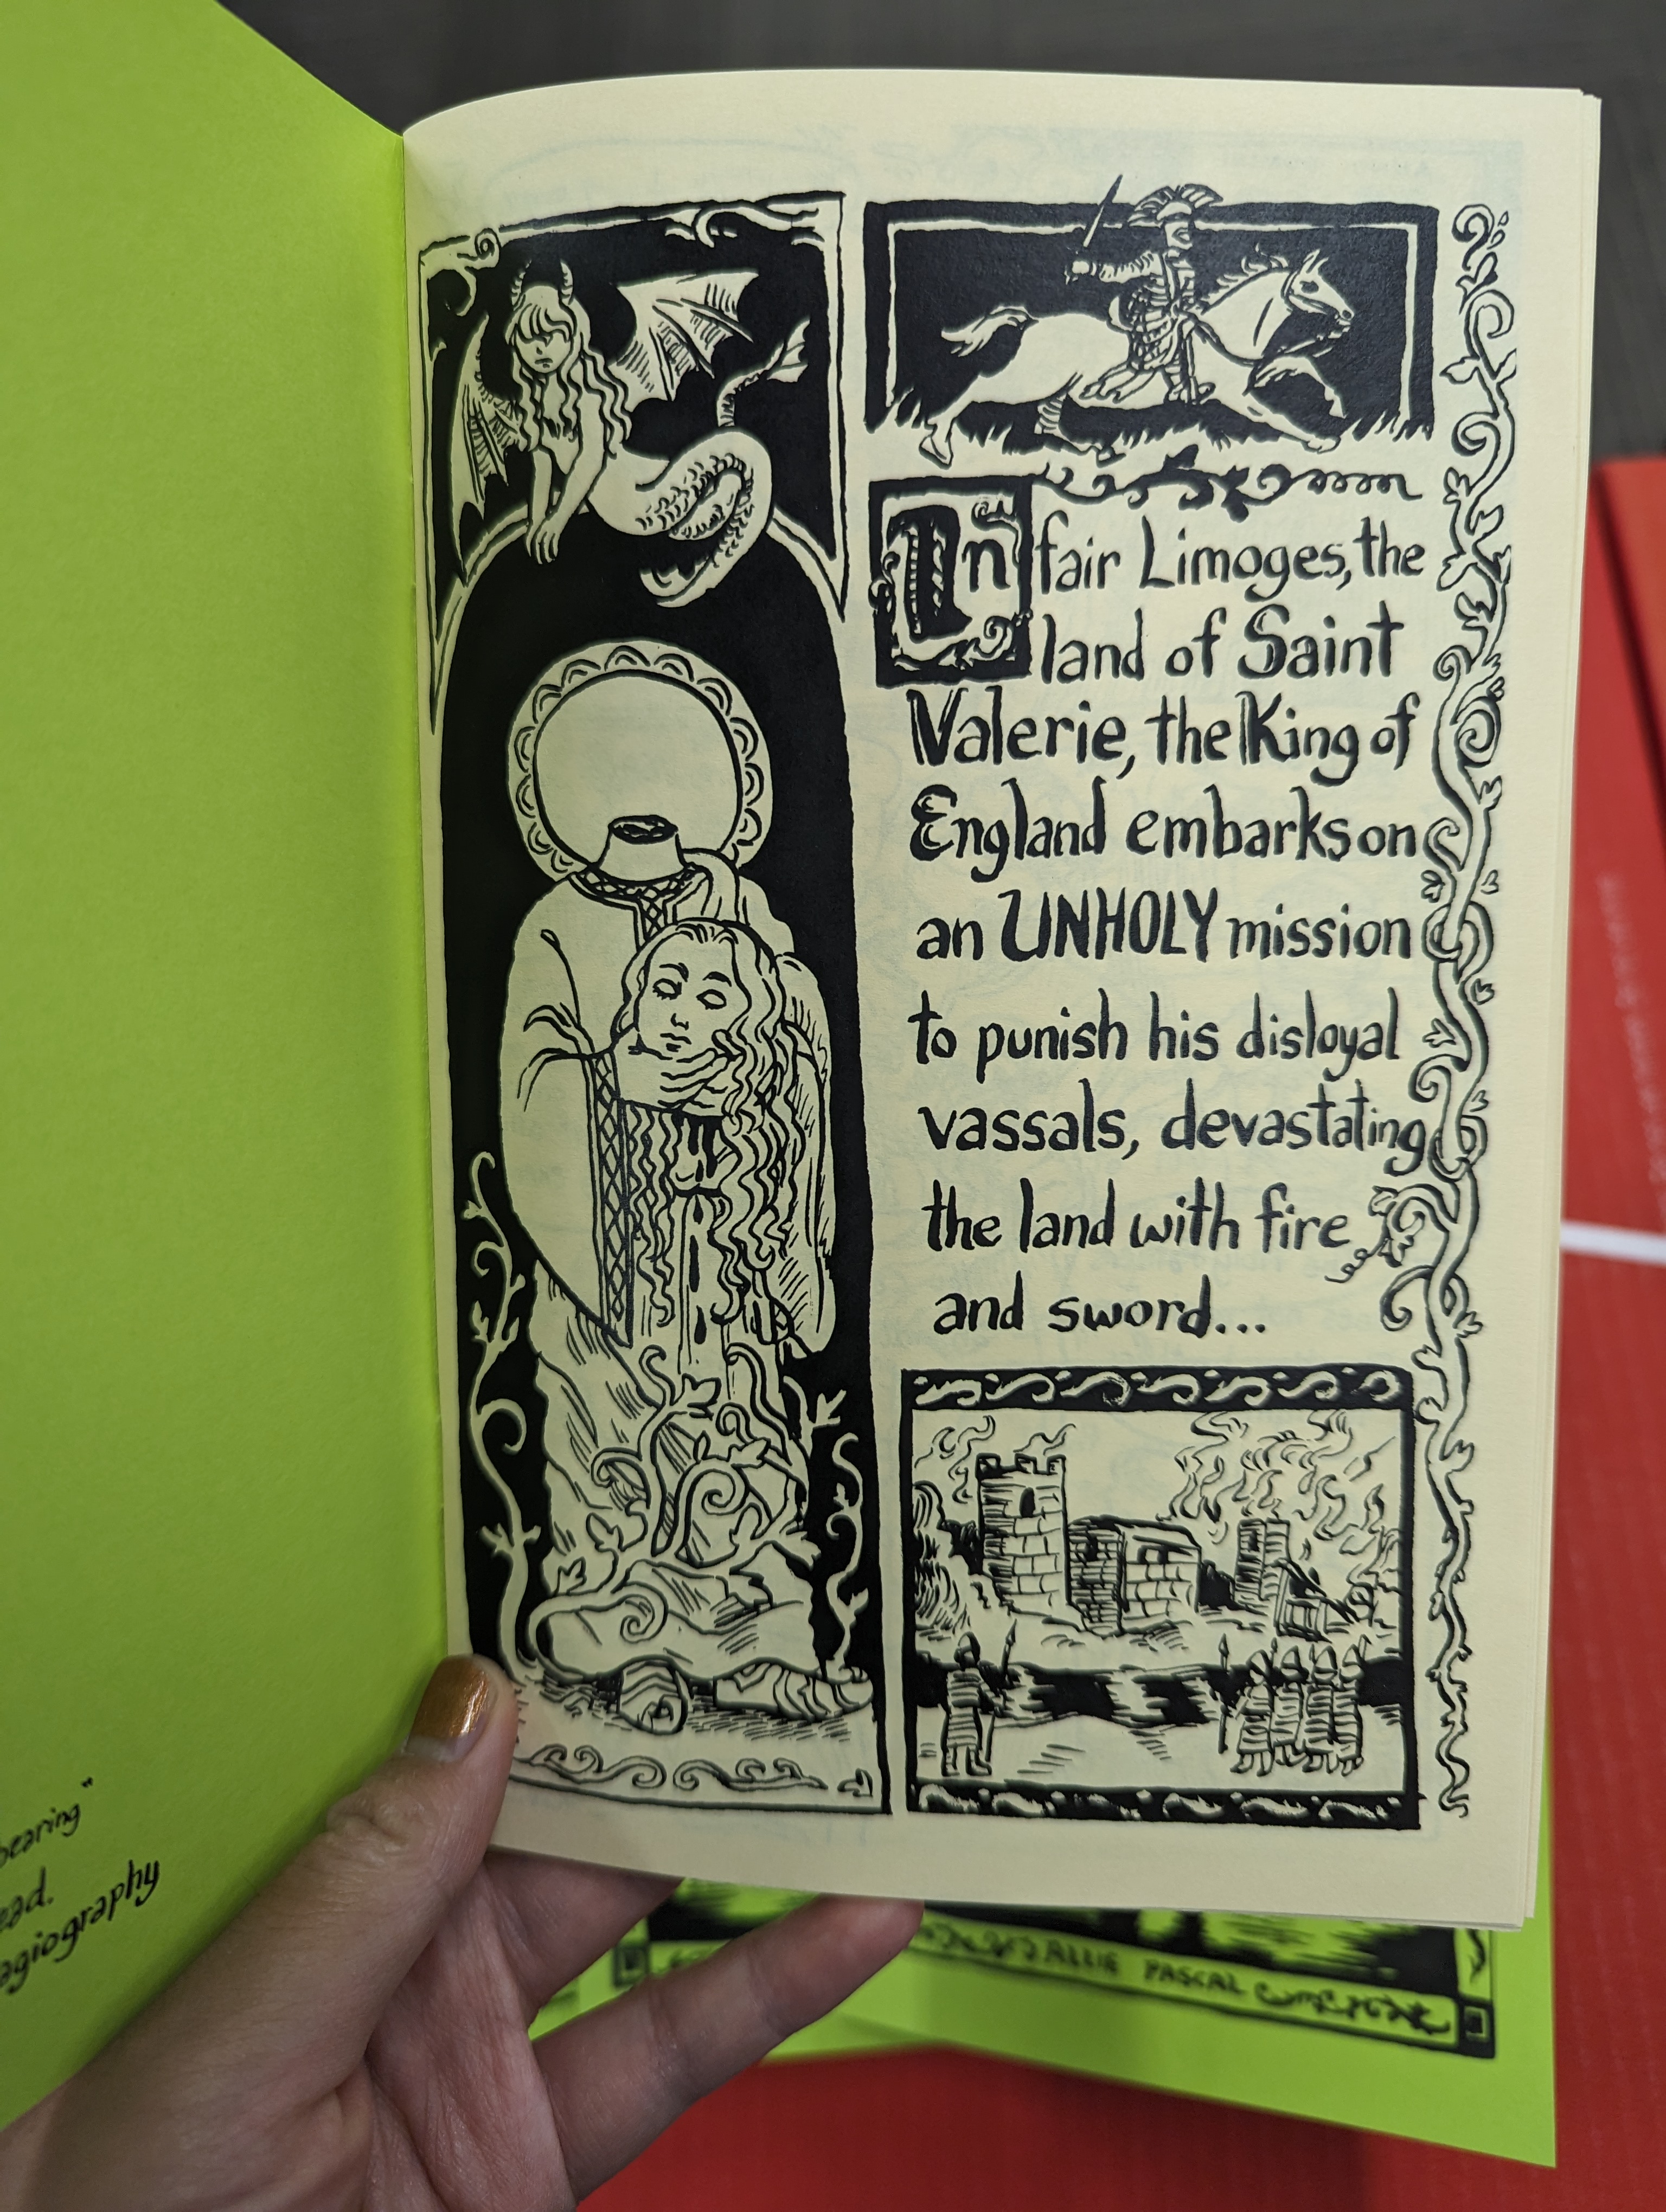 bearing"
agiography
In fair Limoges, the
land of Saint
Valerie, the King of
England embarks on
an UNHOLY mission
to punish his disloyal
vassals, devastating
the land with fire
and sword...
ALLIE PASCAL